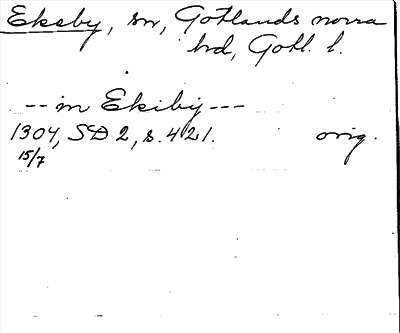 Eksby, sn, Gotlands norra
hd, Gotl. l.
-- in Ekiby ---
1304, SD 2, s. 421. orig.
15/7